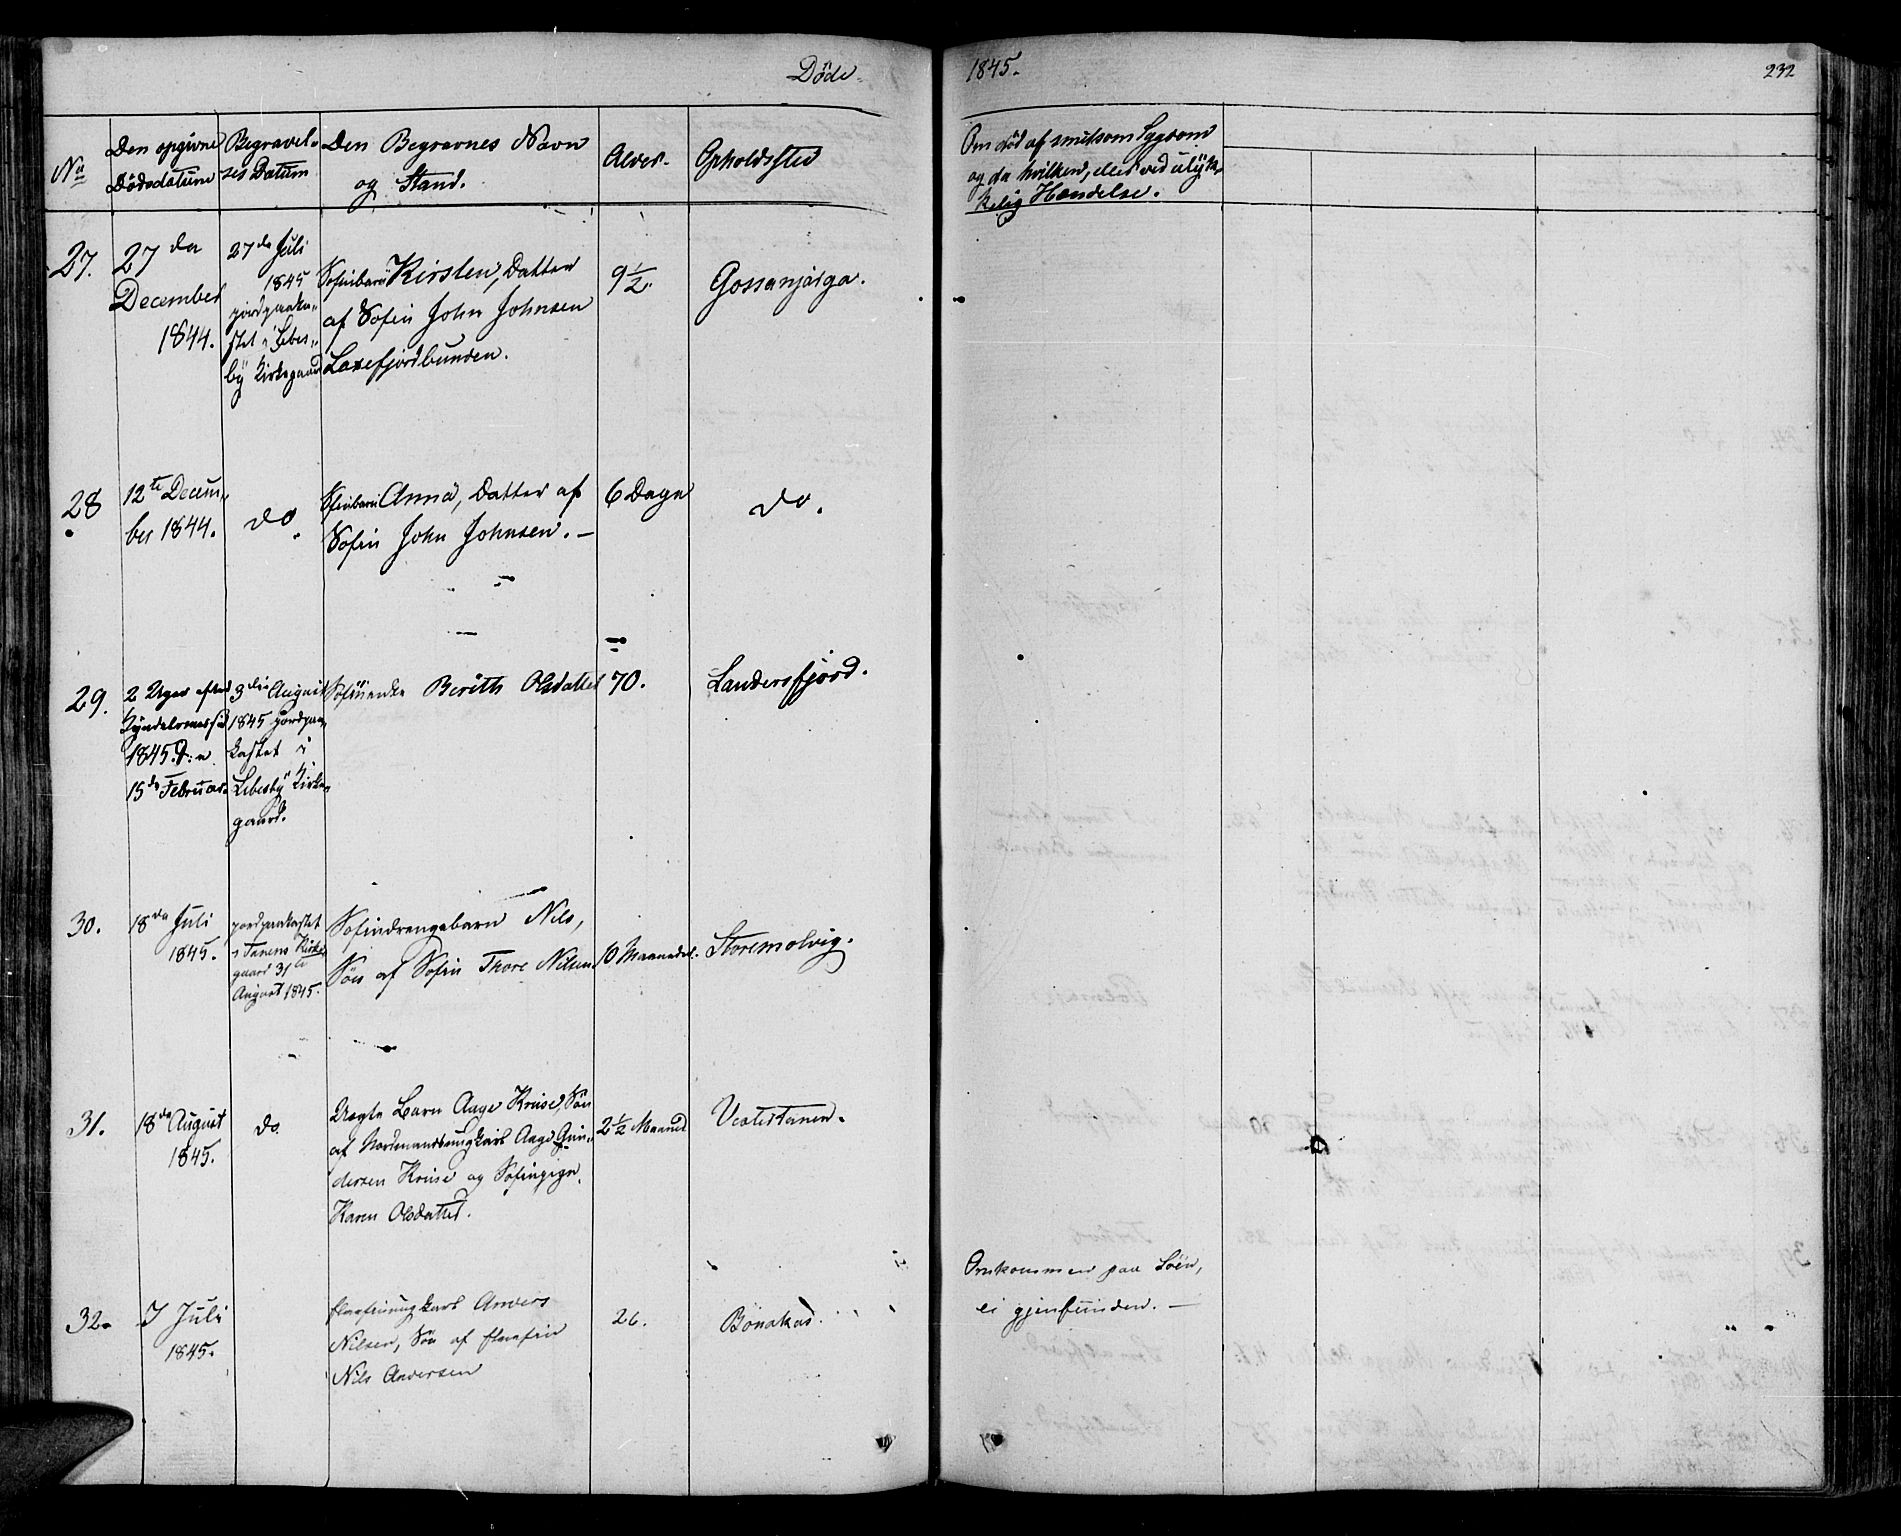 Døde
1845.
232
No
Den opgivne
Dødsdatum
Begravel-
ses Datum
Den Begravnes Navn
og Stand.
Alder.
Opholdssted
Om død af smitsom Sygdom
og da hvilken, eller ved ulyk-
kelig Hændelse.
27.
27de
December
1844.
27de Juli
1845
jordpaaka-
stet i Lebes-
by Kirkegaard
Søfinbarn Kirsten, Datter
af Søfin John Johnsen
Laxefjordbunden.
9½.
Gossanjarga.
28
12te Decem-
ber 1844.
do.
Søfinbarn Anna, Datter af
Søfin John Johnsen. –
6 Dage
do.
29.
2 Uger efter
Kyndelsmesse
1845. d: e.
15de Februar.
3die August
1845 jordpaa-
kastet i
Lebesby Kirke-
gaard.
Søfinenke Berith Olsdatter
70.
Landersfjord.
30.
18de Juli
1845.
jordpaakastet
i Tanens Kirke-
gaard 31te
August 1845.
Søfindrengebarn Nils,
Søn af Søfin Thore Nilsen
10 Maaneder.
Storemolvig.
31.
18de August
1845.
do.
Uægte Barn Aage Kruse, Søn
af Nordmandsungkarl Aage Gun-
dersen Kruse og Søfinpige
Karen Olsdatter.
2½ Maaned
Vestertanen.
32.
7 Juli
1845.
Elvefinungkarl Anders
Nilsen, Søn af Elvefin
Nils Andersen
26.
Bonakas.
Omkommen paa Søen,
ei gjenfunden. –